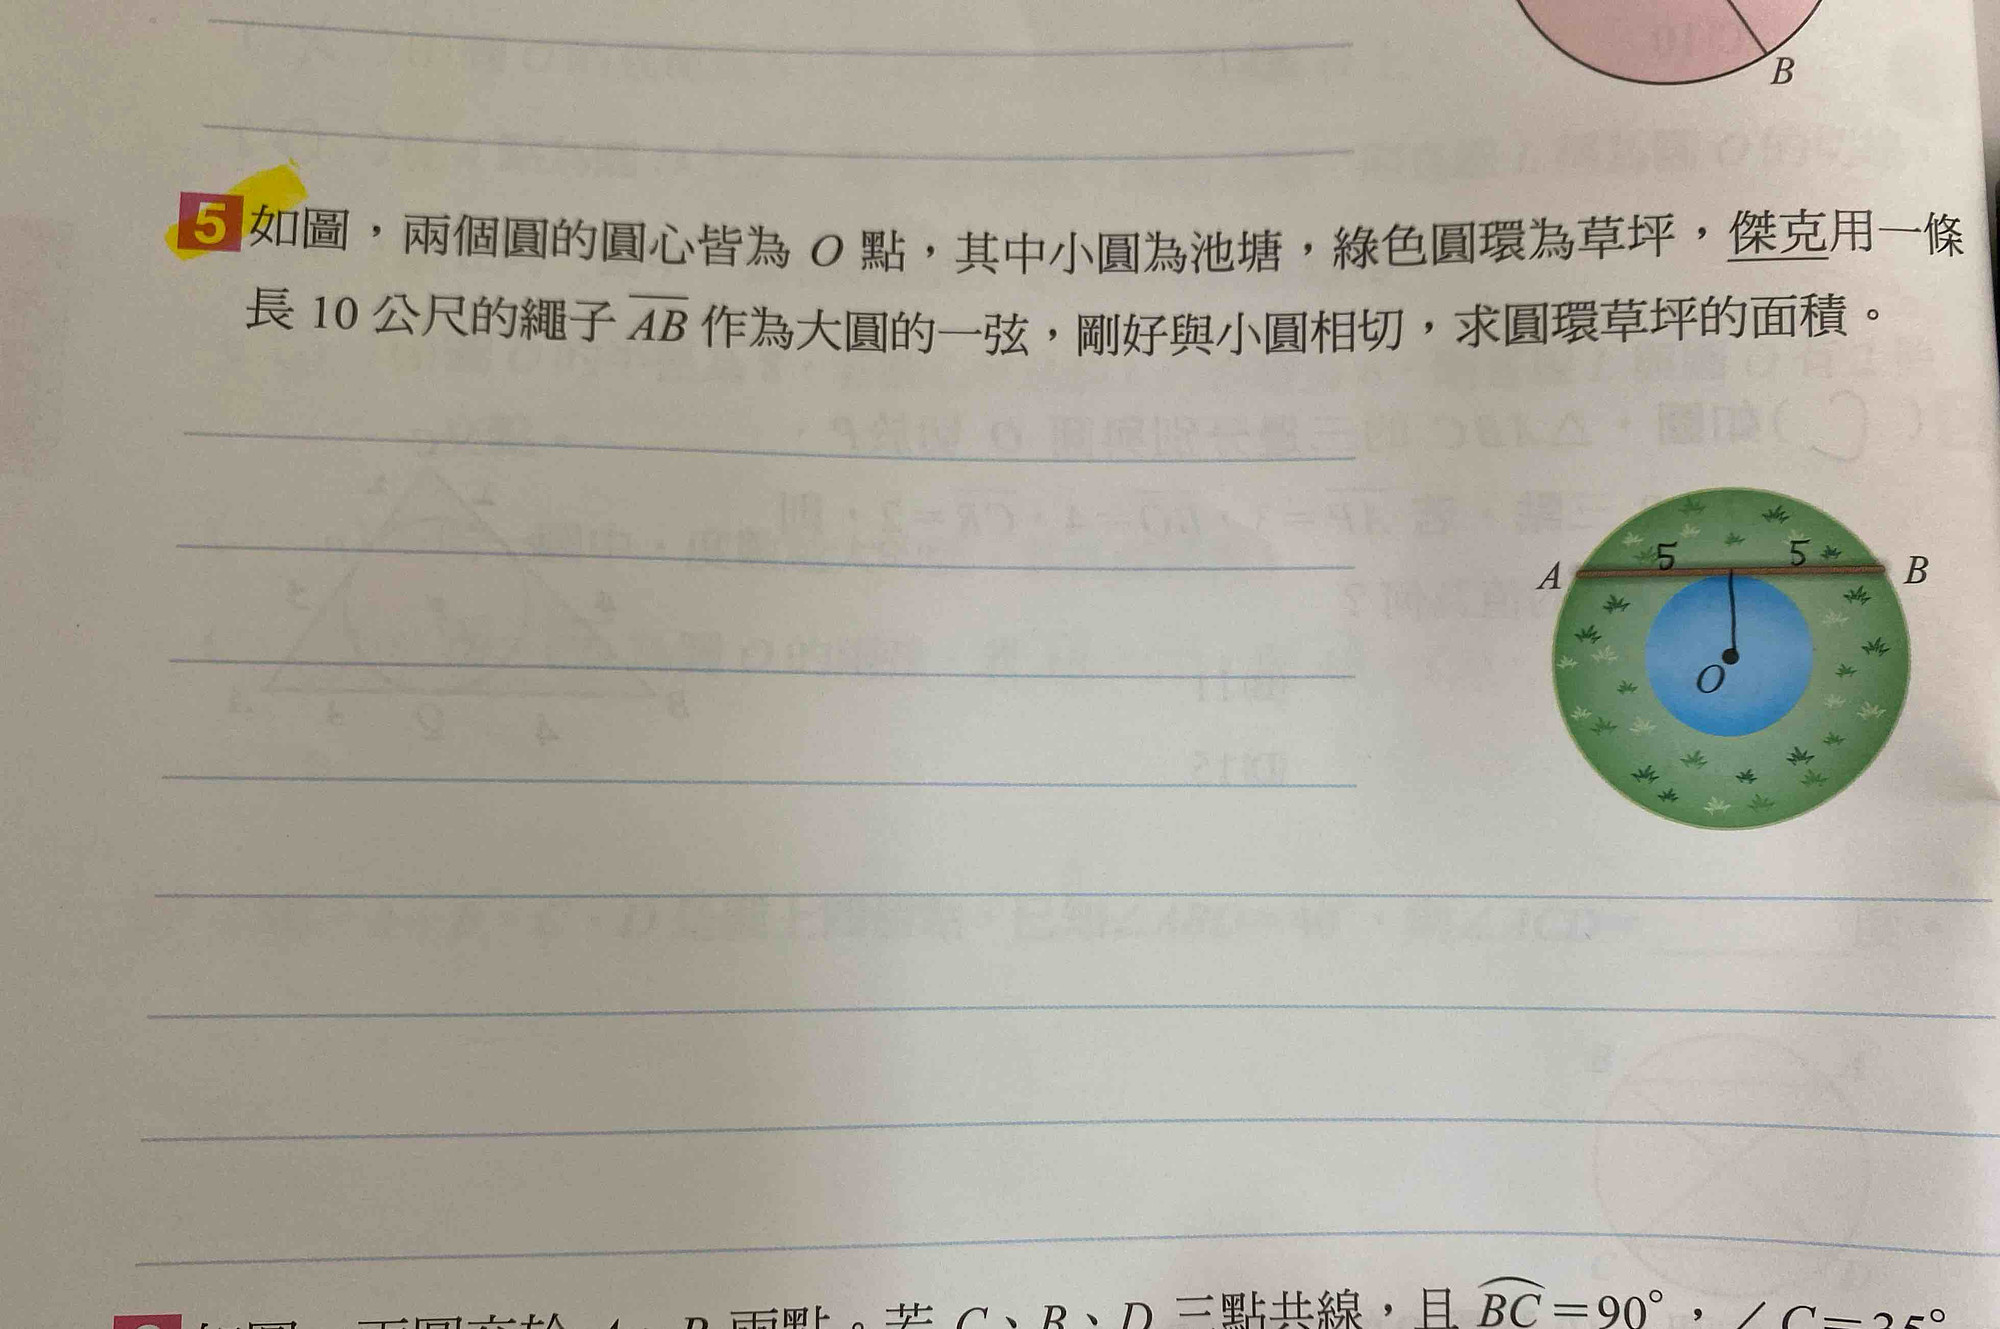 B
5 如圖，兩個圓的圓心皆為 O 點，其中小圓為池塘，綠色圓環為草坪，傑克用一條
長 10 公尺的繩子 AB 作為大圓的一弦，剛好與小圓相切，求圓環草坪的面積。
5 5
A B
O
兩點。若 C、B、D 三點共線，且 BC=90°，∠C=35°